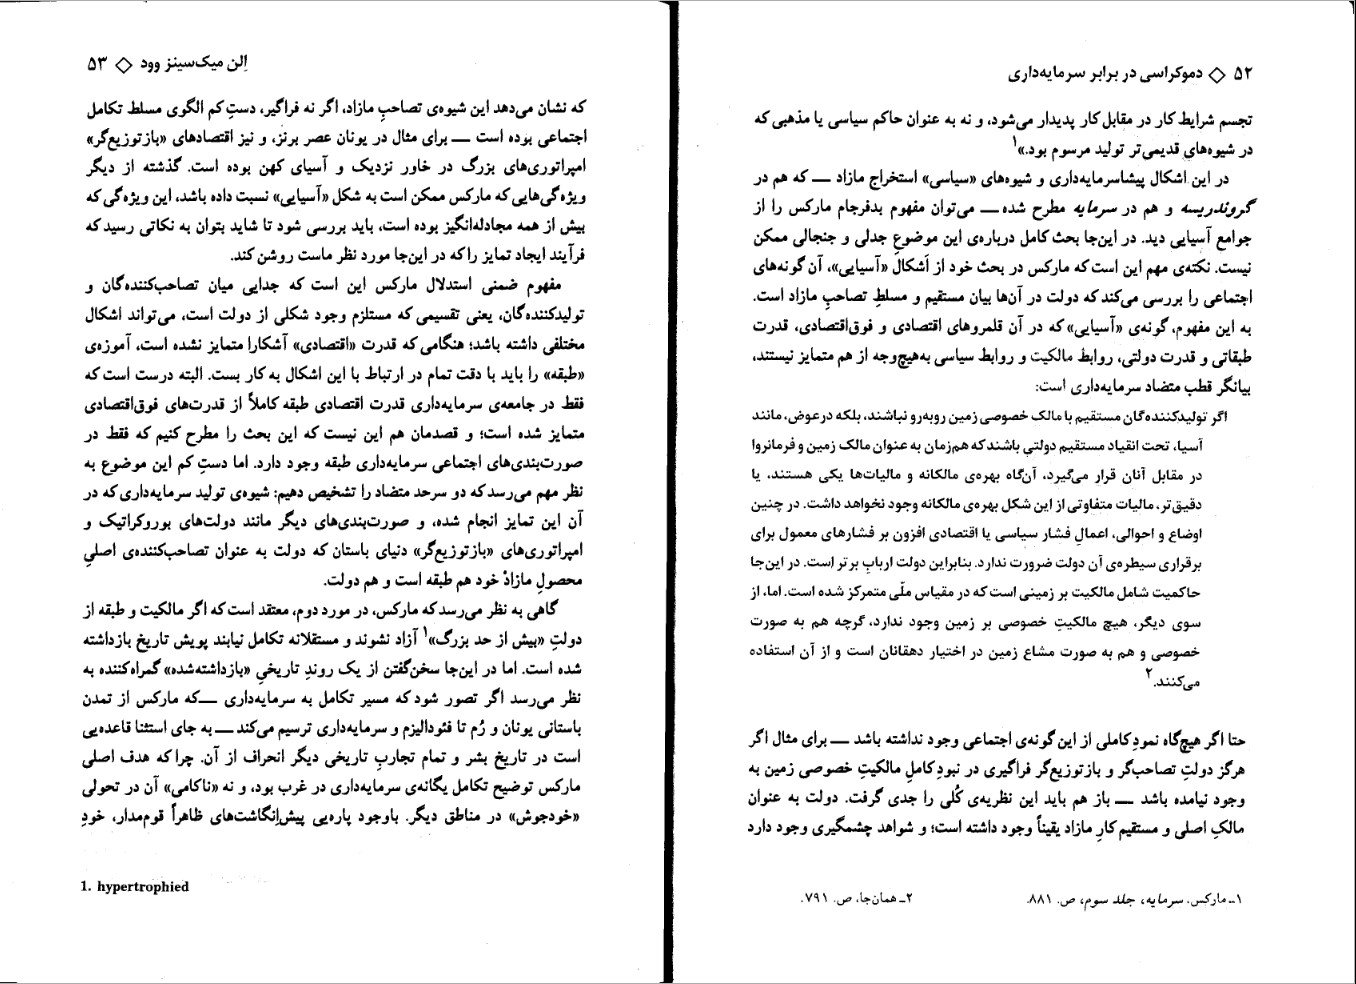 ۵۲ ◇ دموکراسی در برابر سرمایه‌داری
تجسم شرایط کار در مقابل کار پدیدار می‌شود، و نه به عنوان حاکم سیاسی یا مذهبی که
در شیوه‌های قدیمی‌تر تولید مرسوم بود.»۱
در این اشکال پیشاسرمایه‌داری و شیوه‌های «سیاسی» استخراج مازاد ـــ که هم در
گروندریسه و هم در سرمایه مطرح شده ـــ می‌توان مفهوم بدفرجام مارکس را از
جوامع آسیایی دید. در این‌جا بحث کامل درباره‌ی این موضوعِ جدلی و جنجالی ممکن
نیست. نکته‌ی مهم این است که مارکس در بحث خود از اَشکال «آسیایی»، آن گونه‌های
اجتماعی را بررسی می‌کند که دولت در آن‌ها بیان مستقیم و مسلطِ تصاحبِ مازاد است.
به این مفهوم، گونه‌ی «آسیایی» که در آن قلمروهای اقتصادی و فوق‌اقتصادی، قدرت
طبقاتی و قدرت دولتی، روابط مالکیت و روابط سیاسی به‌هیچ‌وجه از هم متمایز نیستند،
بیانگر قطب متضاد سرمایه‌داری است:
اگر تولیدکننده‌گان مستقیم با مالک خصوصی زمین روبه‌رو نباشند، بلکه درعوض، مانند
آسیا، تحت انقیاد مستقیم دولتی باشند که هم‌زمان به عنوان مالک زمین و فرمانروا
در مقابل آنان قرار می‌گیرد، آن‌گاه بهره‌ی مالکانه و مالیات‌ها یکی هستند، یا
دقیق‌تر، مالیات متفاوتی از این شکل بهره‌ی مالکانه وجود نخواهد داشت. در چنین
اوضاع و احوالی، اعمالِ فشار سیاسی یا اقتصادی افزون بر فشارهای معمول برای
برقراری سیطره‌ی آن دولت ضرورت ندارد. بنابراین دولت اربابِ برتر است. در این‌جا
حاکمیت شامل مالکیت بر زمینی است که در مقیاس ملّی متمرکز شده است. اما، از
سوی دیگر، هیچ مالکیتِ خصوصی بر زمین وجود ندارد، گرچه هم به صورت
خصوصی و هم به صورت مشاع زمین در اختیار دهقانان است و از آن استفاده
می‌کنند.۲
حتا اگر هیچ‌گاه نمودِ کاملی از این گونه‌ی اجتماعی وجود نداشته باشد ـــ برای مثال اگر
هرگز دولتِ تصاحب‌گر و بازتوزیع‌گر فراگیری در نبودِ کاملِ مالکیتِ خصوصی زمین به
وجود نیامده باشد ـــ باز هم باید این نظریه‌ی کُلی را جدی گرفت. دولت به عنوان
مالکِ اصلی و مستقیم کارِ مازاد یقیناً وجود داشته است؛ و شواهد چشمگیری وجود دارد
۱ـ مارکس. سرمایه، جلد سوم، ص. ۸۸۱.
۲ـ همان‌جا، ص. ۷۹۱.
اِلن میک‌سینز وود ◇ ۵۳
که نشان می‌دهد این شیوه‌ی تصاحبِ مازاد، اگر نه فراگیر، دستِ کم الگوی مسلط تکامل
اجتماعی بوده است ـــ برای مثال در یونان عصر برنز، و نیز اقتصادهای «بازتوزیع‌گر»
امپراتوری‌های بزرگ در خاور نزدیک و آسیای کهن بوده است. گذشته از دیگر
ویژه‌گی‌هایی که مارکس ممکن است به شکل «آسیایی» نسبت داده باشد، این ویژه‌گی که
بیش از همه مجادله‌انگیز بوده است، باید بررسی شود تا شاید بتوان به نکاتی رسید که
فرآیند ایجاد تمایز را که در این‌جا مورد نظر ماست روشن کند.
مفهوم ضمنی استدلال مارکس این است که جدایی میان تصاحب‌کننده‌گان و
تولیدکننده‌گان، یعنی تقسیمی که مستلزم وجود شکلی از دولت است، می‌تواند اشکال
مختلفی داشته باشد؛ هنگامی که قدرت «اقتصادی» آشکارا متمایز نشده است، آموزه‌ی
«طبقه» را باید با دقت تمام در ارتباط با این اشکال به کار بست. البته درست است که
فقط در جامعه‌ی سرمایه‌داری قدرت اقتصادی طبقه کاملاً از قدرت‌های فوق‌اقتصادی
متمایز شده است؛ و قصدمان هم این نیست که این بحث را مطرح کنیم که فقط در
صورت‌بندی‌های اجتماعی سرمایه‌داری طبقه وجود دارد. اما دستِ کم این موضوع به
نظر مهم می‌رسد که دو سرحد متضاد را تشخیص دهیم: شیوه‌ی تولید سرمایه‌داری که در
آن این تمایز انجام شده، و صورت‌بندی‌های دیگر مانند دولت‌های بوروکراتیک و
امپراتوری‌های «بازتوزیع‌گر» دنیای باستان که دولت به عنوان تصاحب‌کننده‌ی اصلیِ
محصولِ مازادْ خود هم طبقه است و هم دولت.
گاهی به نظر می‌رسد که مارکس، در مورد دوم، معتقد است که اگر مالکیت و طبقه از
دولتِ «بیش از حد بزرگ»۱ آزاد نشوند و مستقلانه تکامل نیابند پویش تاریخ بازداشته
شده است. اما در این‌جا سخن‌گفتن از یک روندِ تاریخیِ «بازداشته‌شده» گمراه‌کننده به
نظر می‌رسد اگر تصور شود که مسیر تکامل به سرمایه‌داری ـــ که مارکس از تمدن
باستانی یونان و رُم تا فئودالیزم و سرمایه‌داری ترسیم می‌کند ـــ به جای استثنا قاعده‌یی
است در تاریخ بشر و تمام تجاربِ تاریخی دیگر انحراف از آن. چرا که هدف اصلی
مارکس توضیح تکامل یگانه‌ی سرمایه‌داری در غرب بود، و نه «ناکامی» آن در تحولی
«خودجوش» در مناطق دیگر. باوجود پاره‌یی پیش‌اِنگاشت‌های ظاهراً قوم‌مدار، خودِ
1. hypertrophied